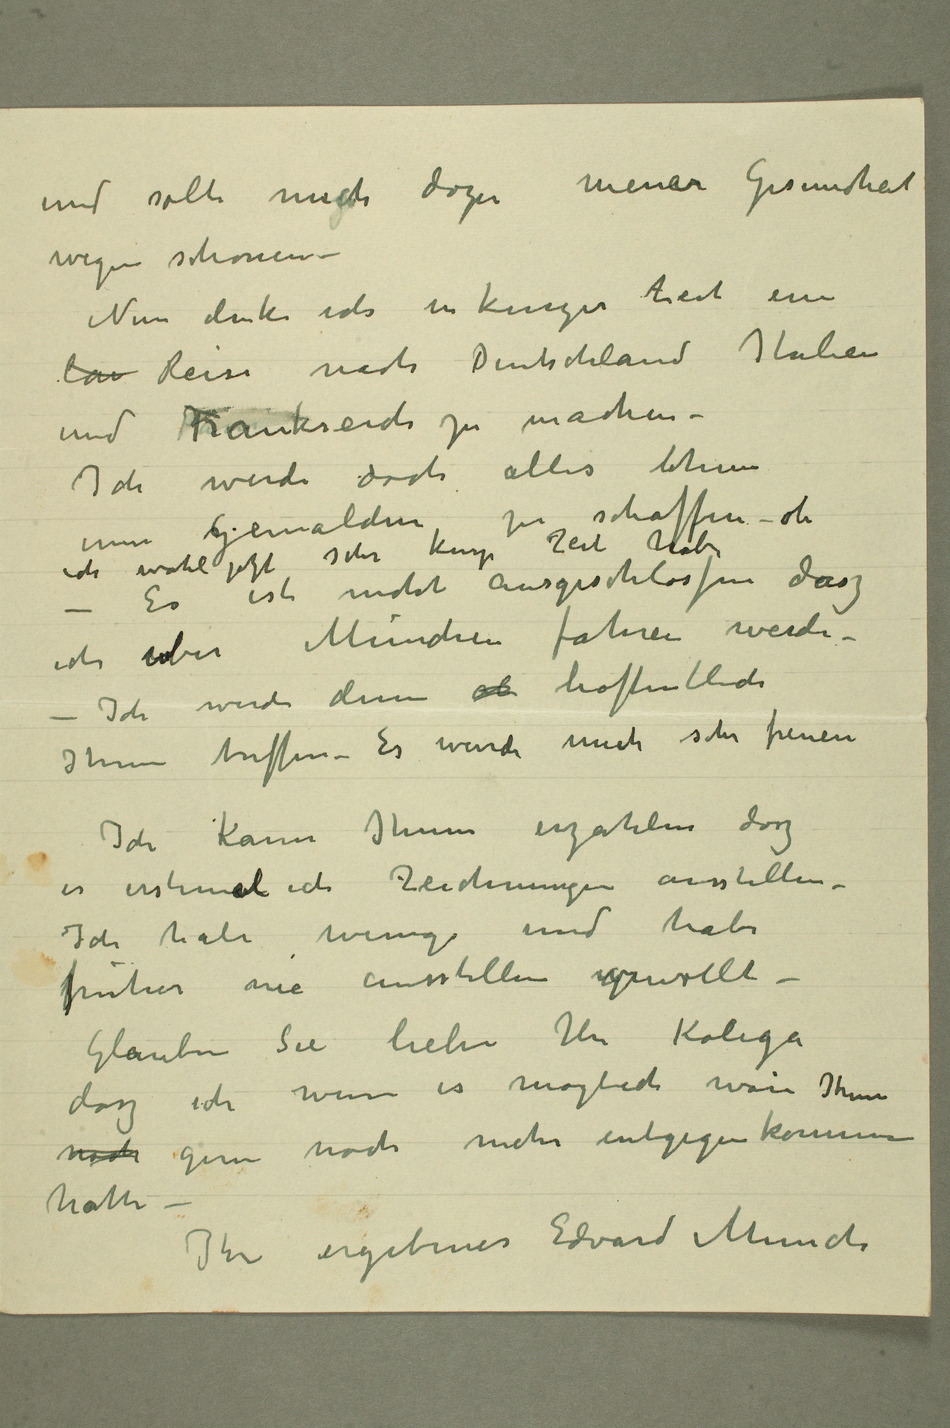 und solte mich dazu meiner Gesundheit
wegen schonen –
Nun denke ich in kurzer Zeit eine
lan Reise nach Deutschland Italien
und Frankreich zu machen –
Ich werde doch alles thun
um Gemälden zu schaffen – ob
ich wohl jetzt sehr kurz Zeit habe
– Es ist nicht ausgeschlossen dasz
ich uber München fahren werde –
– Ich werde denn ob hoffentlich
Ihnen treffen – Es wurde mich sehr freuen
Ich kann Ihnen erzahlen dasz
es erstemal ich Zeichnungen ausstellen –
Ich habe wenige und habe
früher nie ausstellen gewollt –
Glauben Sie lieber Hr Kolega
dasz ich wenn es moglich wäre Ihnen
noch gern noch mehr entgegenkommen
hatte –
Ihr ergebener Edvard Munch